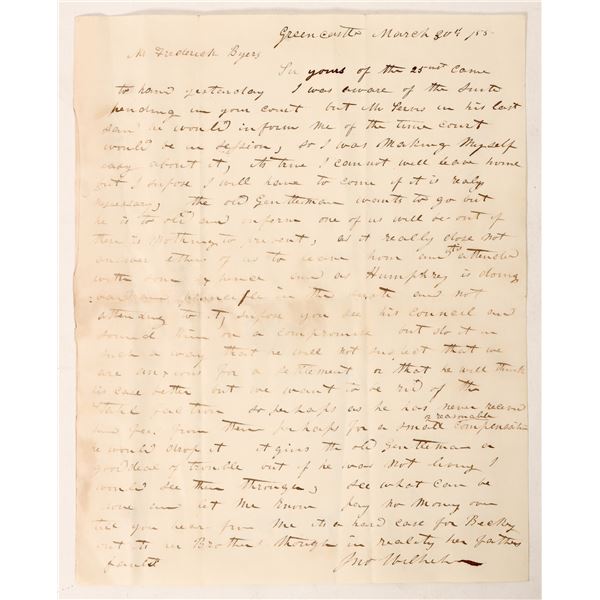 Greencastle March 30th /55
Mr Frederick Byers
Sir yours of the 25 inst came
to hand yesterday I was aware of the Suit
pending in your court but Mr in his last
said he would inform me of the time court
would be in session, so I was making myself
easy about it, its true I cannot well leave home
but I supose I will have to come if it is realy
necessary, the old Gentleman wants to go but
he is to old and infirm one of us will be out if
there is nothing to prevent, as it really does not
answer either of us to leave home and its attended
with some expence and as Humphrey is doing
business in the and not
attending to it, supose you see his council and
sound him on a compromise but do it in
such a way that he will not suspect that we
are anxious for a settlement or that he will think
his case better but we want to be rid of the
so perhaps as he has never received
any fee from them perhaps for a small or reasonable compensation
he would drop it it gives the old Gentleman a
good deal of trouble but if he was not living I
would see them through, see what can be
done and let me know pay no money over
till you hear from me its a hard case for Becky
but its in Brother though in reality her fathers
fault Jno Wilhelm